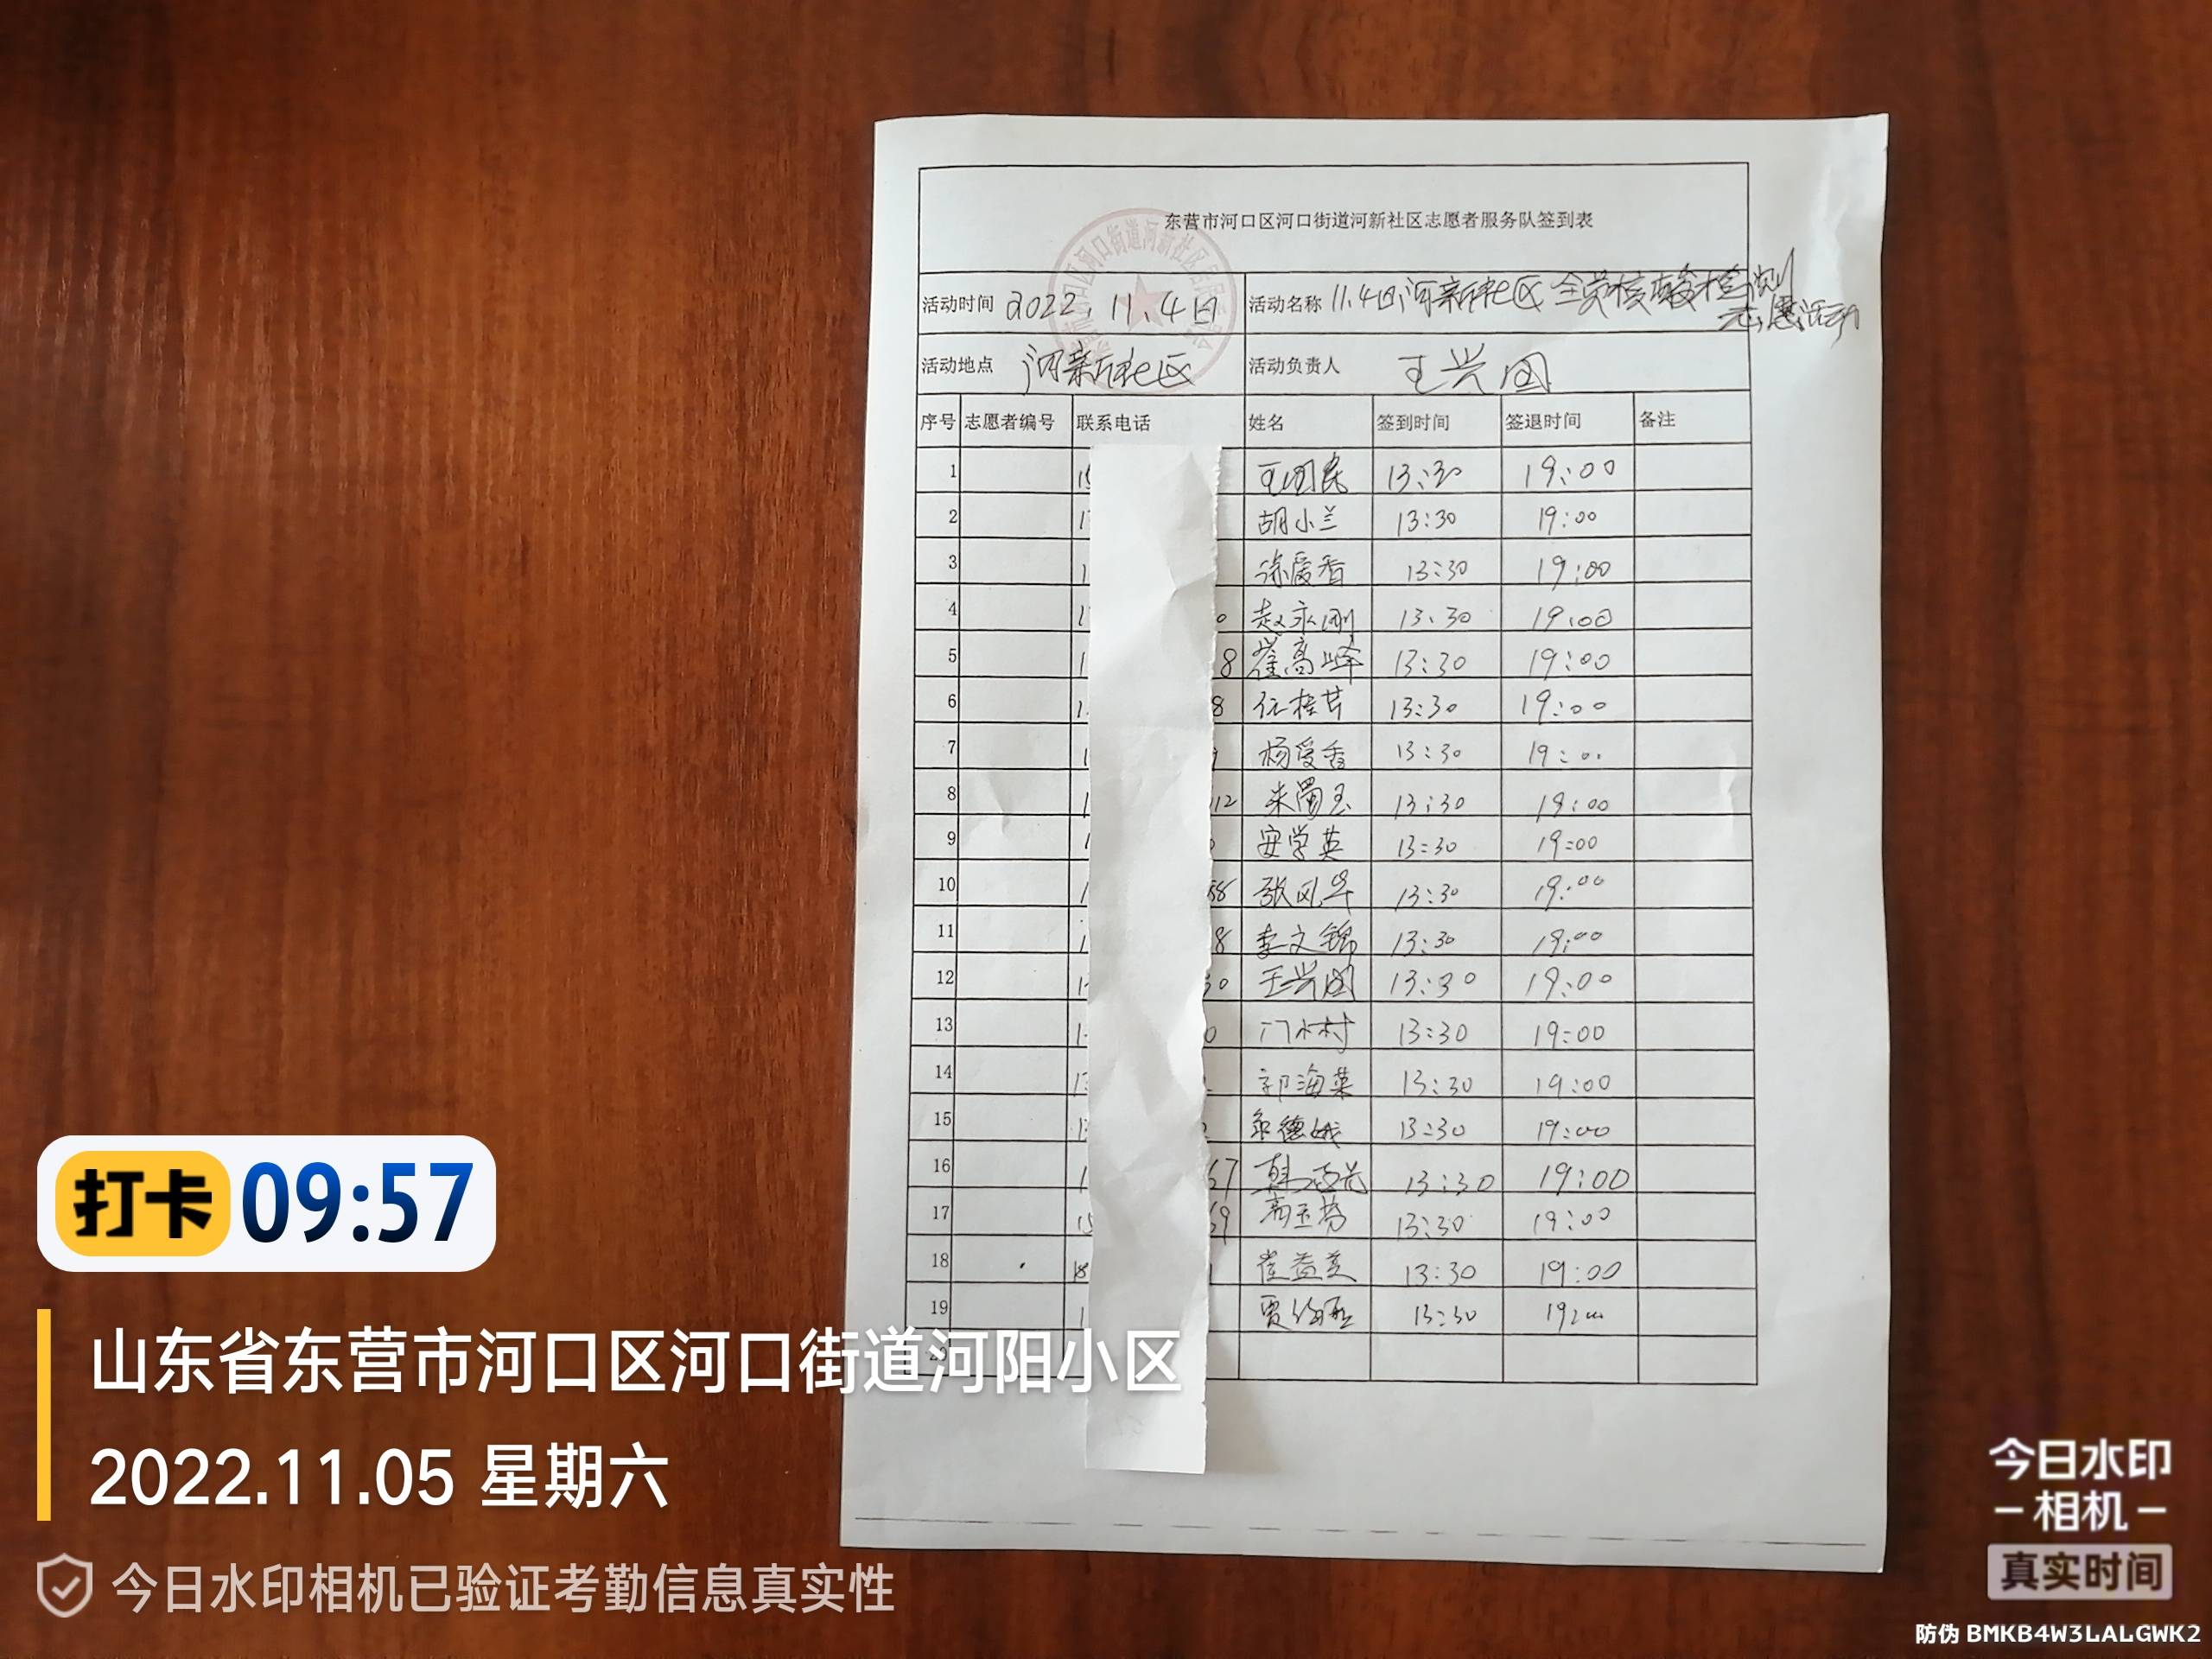 东营市河口区河口街道河新社区志愿者服务队签到表
活动时间 2022.11.4日 活动名称 11.4日河新社区全员核酸检测
志愿活动
活动地点 河新社区 活动负责人 王兴国
序号 志愿者编号 联系电话 姓名 签到时间 签退时间 备注
1 15 王国民 13:30 19:00
2 17 胡小兰 13:30 19:00
3 1 徐爱香 13:30 19:00
4 0 赵永刚 13:30 19:00
5 1 8 崔高峰 13:30 19:00
6 1 8 任桂芹 13:30 19:00
7 1 杨爱香 13:30 19:00
8 1 12 朱蜀玉 13:30 19:00
9 1 安学英 13:30 19:00
10 1 58 张风华 13:30 19:00
11 1 8 李文锦 13:30 19:00
12 1 30 王兴国 13:30 19:00
13 1 0 门木村 13:30 19:00
14 13 郭海菜 13:30 19:00
15 13 13:30 19:00
16 1 57 13:30 19:00
17 15 69 高玉芬 13:30 19:00
18 18 1 崔益美 13:30 19:00
19 1 贾 13:30 19:00
20
打卡 09:57
山东省东营市河口区河口街道河阳小区
2022.11.05 星期六
今日水印相机已验证考勤信息真实性
今日水印
相机
真实时间
防伪 BMKB4W3LALGWK2